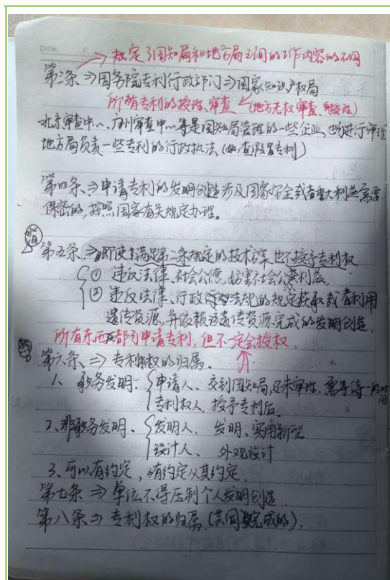 规定了国知局和地方局之间的工作内容的不同
第三条 ⇒ 国务院专利行政部门 ⇒ 国家知识产权局
所有专利的授权、审查 (地方无权审查、授权)
北京审查中心、广州审查中心等是国知局管理的一些企业,也进行审查
地方局负责一些专利的行政执法 (如查假冒专利)
第四条 ⇒ 申请专利的发明创造涉及国家安全或者重大利益需要
保密的,按照国家有关规定办理。
第五条 ⇒ 即使满足第二条规定的技术方案,也不授予专利权
① 违反法律、社会公德,妨害社会公共利益。
② 违反法律、行政法规的规定获取或者利用
遗传资源,并依赖该遗传资源完成的发明创造。
所有东西都可申请专利,但不一定会授权.
第六条 ⇒ 专利权的归属.
1、职务发明: 申请人、交到国知局,还未审查,需等待一段时间
专利权人 授予专利后.
2、非职务发明、 发明人、发明、实用新型
设计人、外观设计
3、可以有约定,有约定从其约定.
第七条 ⇒ 单位不得压制个人发明创造
第八条 ⇒ 专利权的归属 (共同完成的).